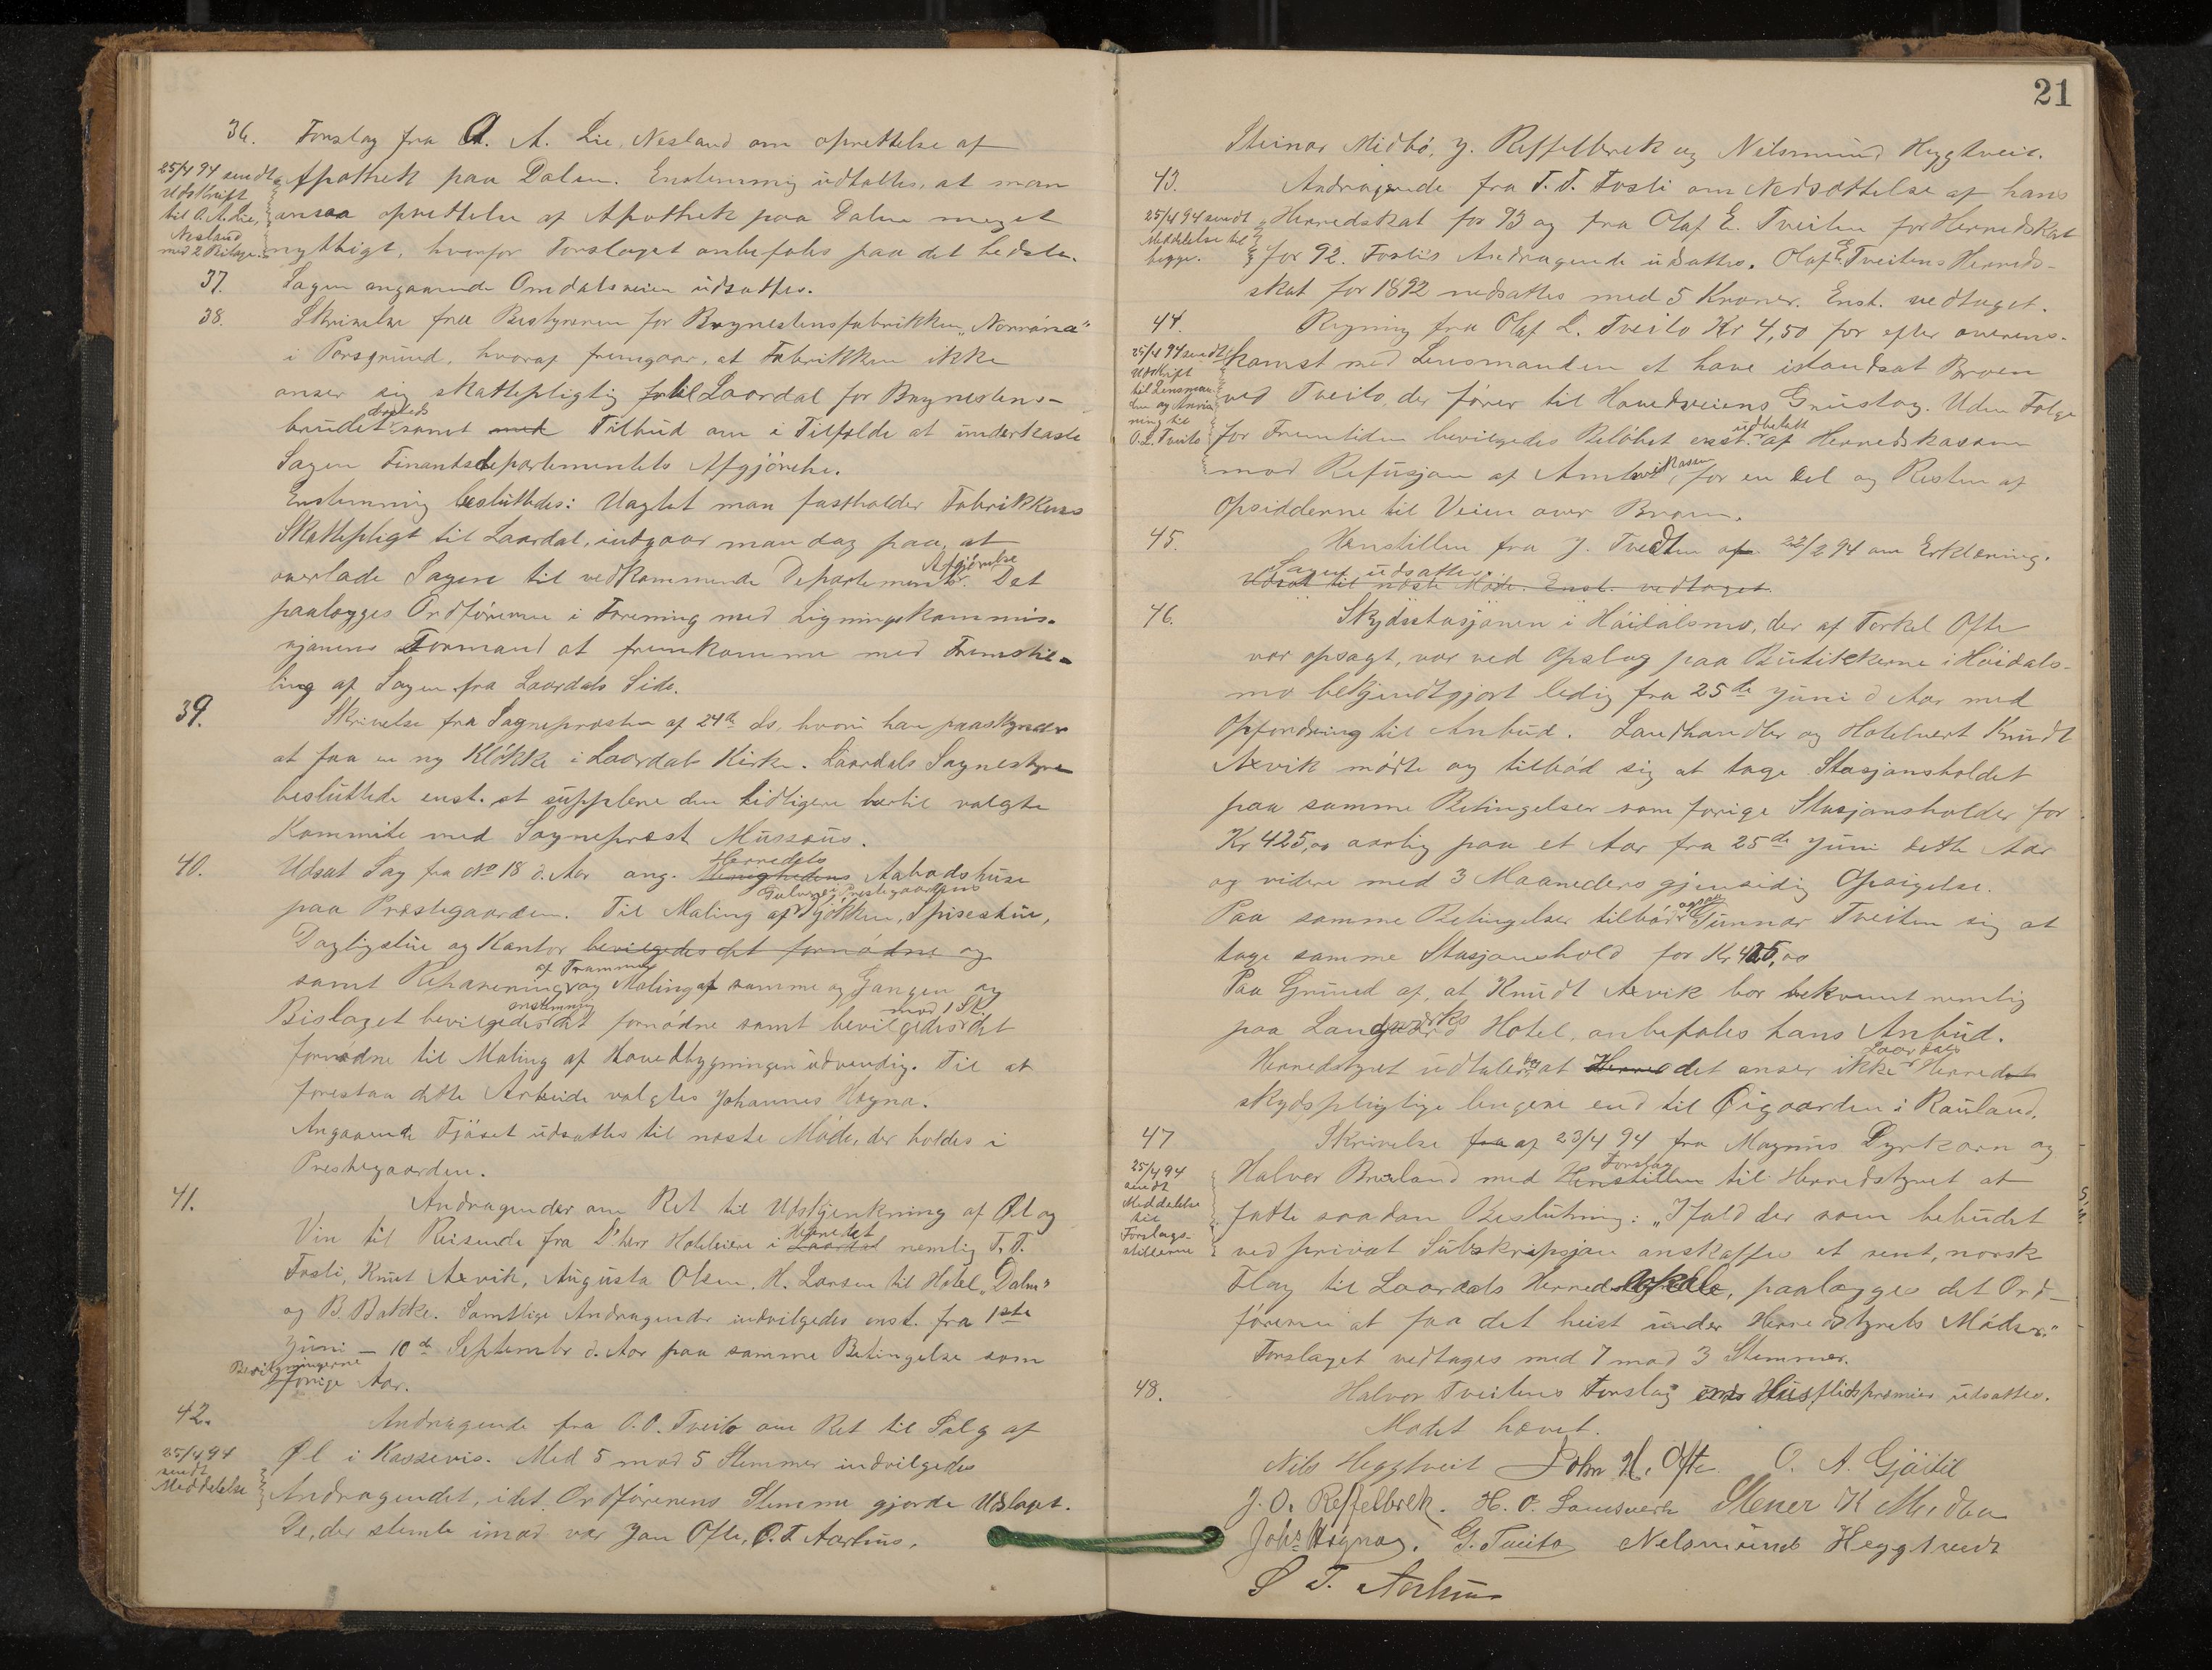 36. Forslag fra A. A. Lie, Nesland om oprettelse af
25/4 94 sendt
Udskrift
til A. A. Lie,
Nesland
med 2 Bilage.
Apothek paa Dalen. Enstemmig udtaltes, at man
ansaa oprettelse af Apothek paa Dalen meget
nyttigt, hvorfor Forslaget anbefales paa det bedste.
37. Sagen angaaende Omdalsveien udsattes.
38. Skrivelse fra Bestyreren for Brynestensfabrikken „Norrøna"
i Porsgrund, hvoraf fremgaar, at Fabrikken ikke
anser sig skattepligtig til Laardal for Brynestens-
brudet samt Tilbud om i Tilfælde at underkaste
Sagen Finantsdepartementets Afgjørelse.
Enstemmig besluttedes: Uagtet man fastholder Fabrikkens
Skattepligt til Laardal, indgaar man dog paa, at
overlade Sagen til vedkommende Departements Afgjørelse. Det
paalægges Ordføreren i Forening med Ligningskommis-
sjonens Formand at fremkomme med Fremstil-
ling af Sagen fra Laardals Side.
39. Skrivelse fra Sognepresten af 24de ds, hvori han paaskynder
at faa en ny Klokke i Laardals Kirke. Laardals Sognestyre
besluttede enst. at supplere den tidligere hertil valgte
Kommite med Sogneprest Mussæus.
40. Udsat Sag fra No 18 d. Aar ang. Menighedens Herredets Aabodshuse
paa Prestegaarden. Til Maling af Gulvet i Prestegaardens Kjøkken, Spisestue,
Dagligstue og Kontor bevilgedes det fornødne og
samt Reparering af Trammen og Maling af samme og Gangen og
Bislaget bevilgedes enstemmig det fornødne samt bevilgedes mod 1 St. det
fornødne til Maling af Hovedbygningen udvendig. Til at
forestaa dette Arbeide valgtes Johannes Høgna.
Angaaende Fjøset udsattes til næste Møde, der holdes i
Prestegaarden.
41. Andragender om Ret til Udskjenkning af Øl og
Vin til Reisende fra D'herr Hoteleiere i Laardal Herredet nemlig T. T.
Fosli, Knut Axvik, Augusta Olsen, H. Larsen til Hotel „Dalen"
og B. Bakke. Samtlige Andragender indvilgedes enst. fra 1ste
Juni — 10de September d. Aar paa samme Betingelse som
Bevilgningerne
forrige Aar.
42. Andragende fra O. O. Tveito om Ret til Salg af
25/4 94
sendt
Meddelelse
Øl i Kassevis. Med 5 mod 5 Stemmer indvilgedes
Andragendet, idet Ordførerens Stemme gjorde Udslaget.
De, der stemte imod var Jon Ofte, O. T. Aarhus,
21
Steinar Midbø, J. Reffelbrek og Nelsmund Heggtveit.
43. Andragende fra T. T. Fosli om Nedsættelse af hans
25/4 94 sendt
Meddelelse til
begge.
Herredskat for 93 og fra Olaf E. Tveiten for Herredskat
for 92. Fosli's Andragende udsattes. Olaf E. Tveitens Herreds-
skat for 1892 nedsattes med 5 Kroner. Enst. vedtaget.
44. Regning fra Olaf L. Tveito Kr 4,50 for efter overens-
25/4 94 sendt
Udskrift
til Lensman-
den og Anvis
ning til
O. L. Tveito
komst med Lensmanden at have istandsat Broen
ved Tveito, der fører til Hovedveiens Grustag. Uden Følge
for Fremtiden bevilgedes Beløbet enst. udbetalt af Herredskassen
mod Refusjon af Amtsveikassen for en Del og Resten af
Opsidderne til Veien over Broen.
45. Henstillen fra J. Tvedten af 22/2 94 om Erklæring.
Sagen udsattes.
Udsat til næste Møde. Enst. vedtaget.
46. Skydsstasjonen i Höidalsmo, der af Torkel Ofte
var opsagt, var ved Opslag paa Butikkerne i Höidals-
mo bekjendtgjort ledig fra 25de Juni d Aar med
Opfordring til Anbud. Landhandler og Hotelvert Knudt
Axvik mødte og tilbød sig at tage Stasjonsholdet
paa samme Betingelser som forige Stasjonsholder for
Kr 425,00 aarlig paa et Aar fra 25de Juni dette Aar
og videre med 3 Maaneders gjensidig Opsigelse.
Paa samme Betingelser tilbød ogsaa Gunnar Tveiten sig at
tage samme Stasjonshold for Kr 425,00
Paa Grund af, at Knudt Axvik bor bekvemt nemlig
paa Hotel, anbefales hans Anbud.
Herredstyret udtaler, at det anser ikke Laardals Herred
skydspligtige lengere end til Øigaarden i Rauland.
47 Skrivelse fra af 23/4 94 fra Magnus Dyrkorn og
25/4 94
sendt
Meddelelse
til
Forslags-
stillerne
Halvor Bruland med Henstillen Forslag til Herredstyret at
fatte saadan Beslutning: „Ifald der som bebudet
ved privat Subskripsjon anskaffes et rent, norsk
Flag til Laardals Herredslokale, paalægges det Ord-
føreren at faa det heist under Herredstyrets Møder."
Forslaget vedtages med 7 mod 3 Stemmer.
48. Halvor Tveitens Forslag om Husflidspremier udsattes.
Mødet hævet.
Nils Heggtveit John H. Ofte O. A. Gjøitil
J. O. Reffelbrek. H. O. Lamsverk Stener K Midbø
Johs Høgna. G. Tveito Nelsmund Heggtveit
O T. Aarhus